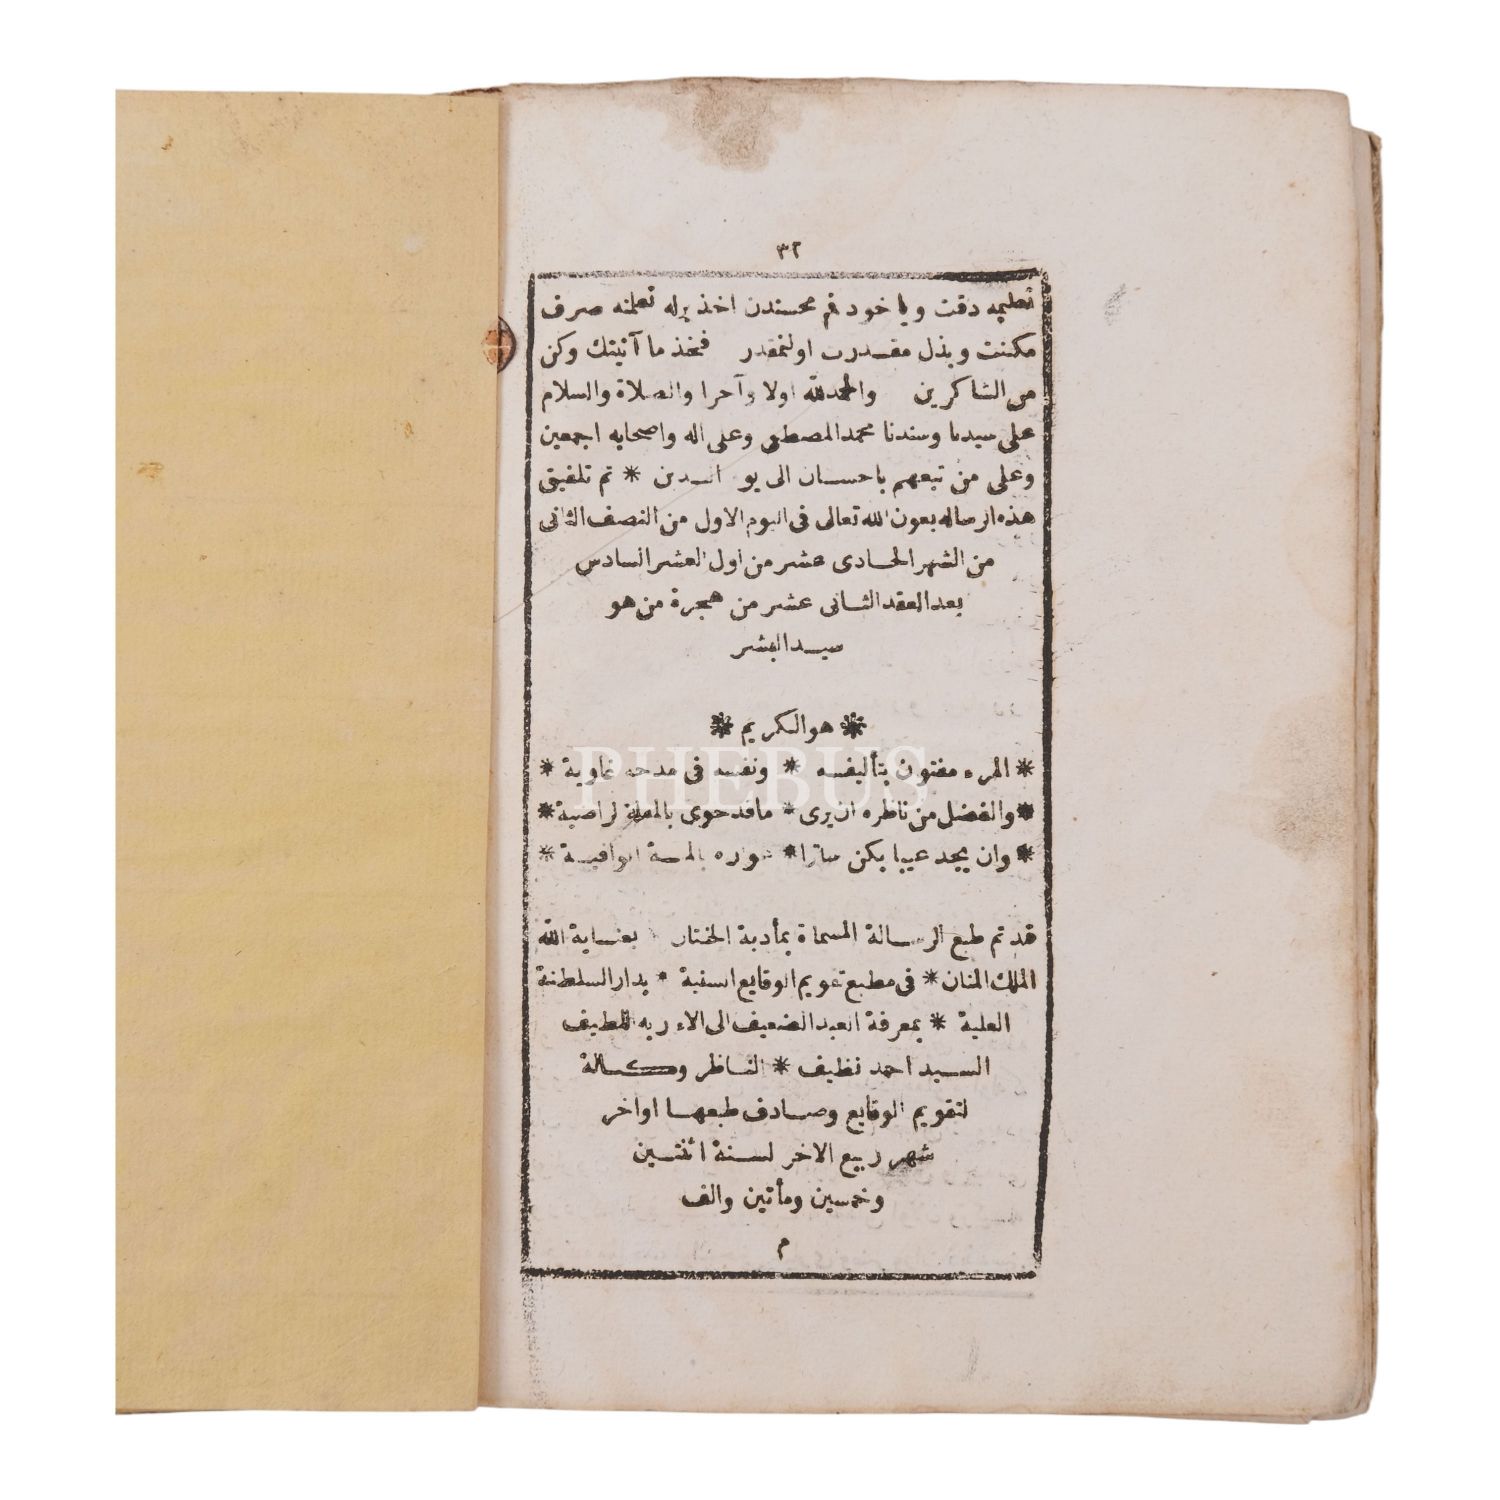 ٣٢
تعليمه دقت ويا خود فم محسندن اخذ يرله تعلمنه صرف
مكنت وبذل مقدرت اولنمقدر فخذ ما آتيتك وكن
من الشاكرين والحمدلله اولا وآخرا والصلاة والسلام
على سيدنا وسندنا محمد المصطفى وعلى اله واصحابه اجمعين
وعلى من تبعهم باحسان الى يو الدين * تم تلفيق
هذه الرساله بعون الله تعالى فى اليوم الاول من النصف الثانى
من الشهر الحادى عشر من اول العشر السادس
بعد العقد الثانى عشر من هجرة من هو
سيد البشر
* هو الكريم *
* المرء مفتون بتأليفه * ونفسه فى مدحه غاوية *
* والفضل من ناظره ان يرى * ما قد حوى بالمقلة الراضية *
* وان يجد عيبا يكن ساترا * عواره بالمنة الوافية *
قد تم طبع الرسالة المسماة بمأدبة الختان بعناية الله
الملك المنان * فى مطبع تقويم الوقايع السنية * بدار السلطنة
العلية * بمعرفة العبد الضعيف الى الاء ربه اللطيف
السيد احمد نظيف * الناظر وكالة
لتقويم الوقايع وصادف طبعها اواخر
شهر ربيع الاخر لسنة اثنتين
وخمسين ومأتين والف
م
PHEBUS